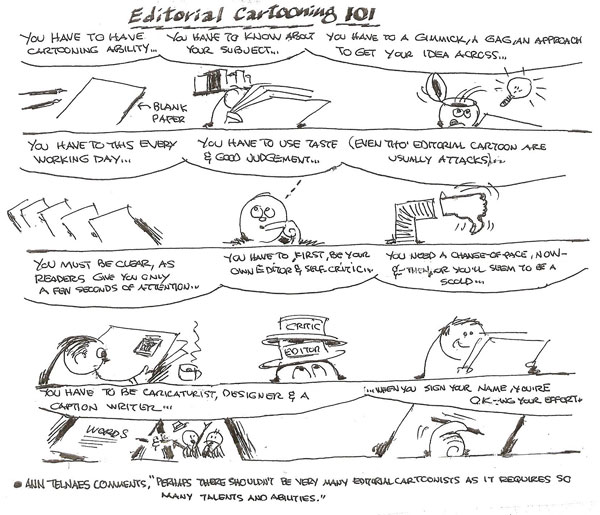 Editorial Cartooning 101
YOU HAVE TO HAVE
CARTOONING ABILITY...
YOU HAVE TO KNOW ABOUT
YOUR SUBJECT...
YOU HAVE TO A GIMMICK, A GAG, AN APPROACH
TO GET YOUR IDEA ACROSS...
BLANK
PAPER
YOU HAVE TO THIS EVERY
WORKING DAY...
YOU HAVE TO USE TASTE
& GOOD JUDGEMENT...
(EVEN THO' EDITORIAL CARTOON ARE
USUALLY ATTACKS)...
YOU MUST BE CLEAR, AS
READERS GIVE YOU ONLY
A FEW SECONDS OF ATTENTION...
YOU HAVE TO, FIRST, BE YOUR
OWN EDITOR & SELF-CRITIC...
YOU NEED A CHANGE-OF-PACE, NOW-
&-THEN, OR YOU'LL SEEM TO BE A
SCOLD...
CRITIC
EDITOR
YOU HAVE TO BE CARICATURIST, DESIGNER & A
CAPTION WRITER...
...WHEN YOU SIGN YOUR NAME, YOU'RE
O.K.-ING YOUR EFFORT.
WORDS
• ANN TELNAES COMMENTS, "PERHAPS THERE SHOULDN'T BE VERY MANY EDITORIAL CARTOONISTS AS IT REQUIRES SO
MANY TALENTS AND ABILITIES."